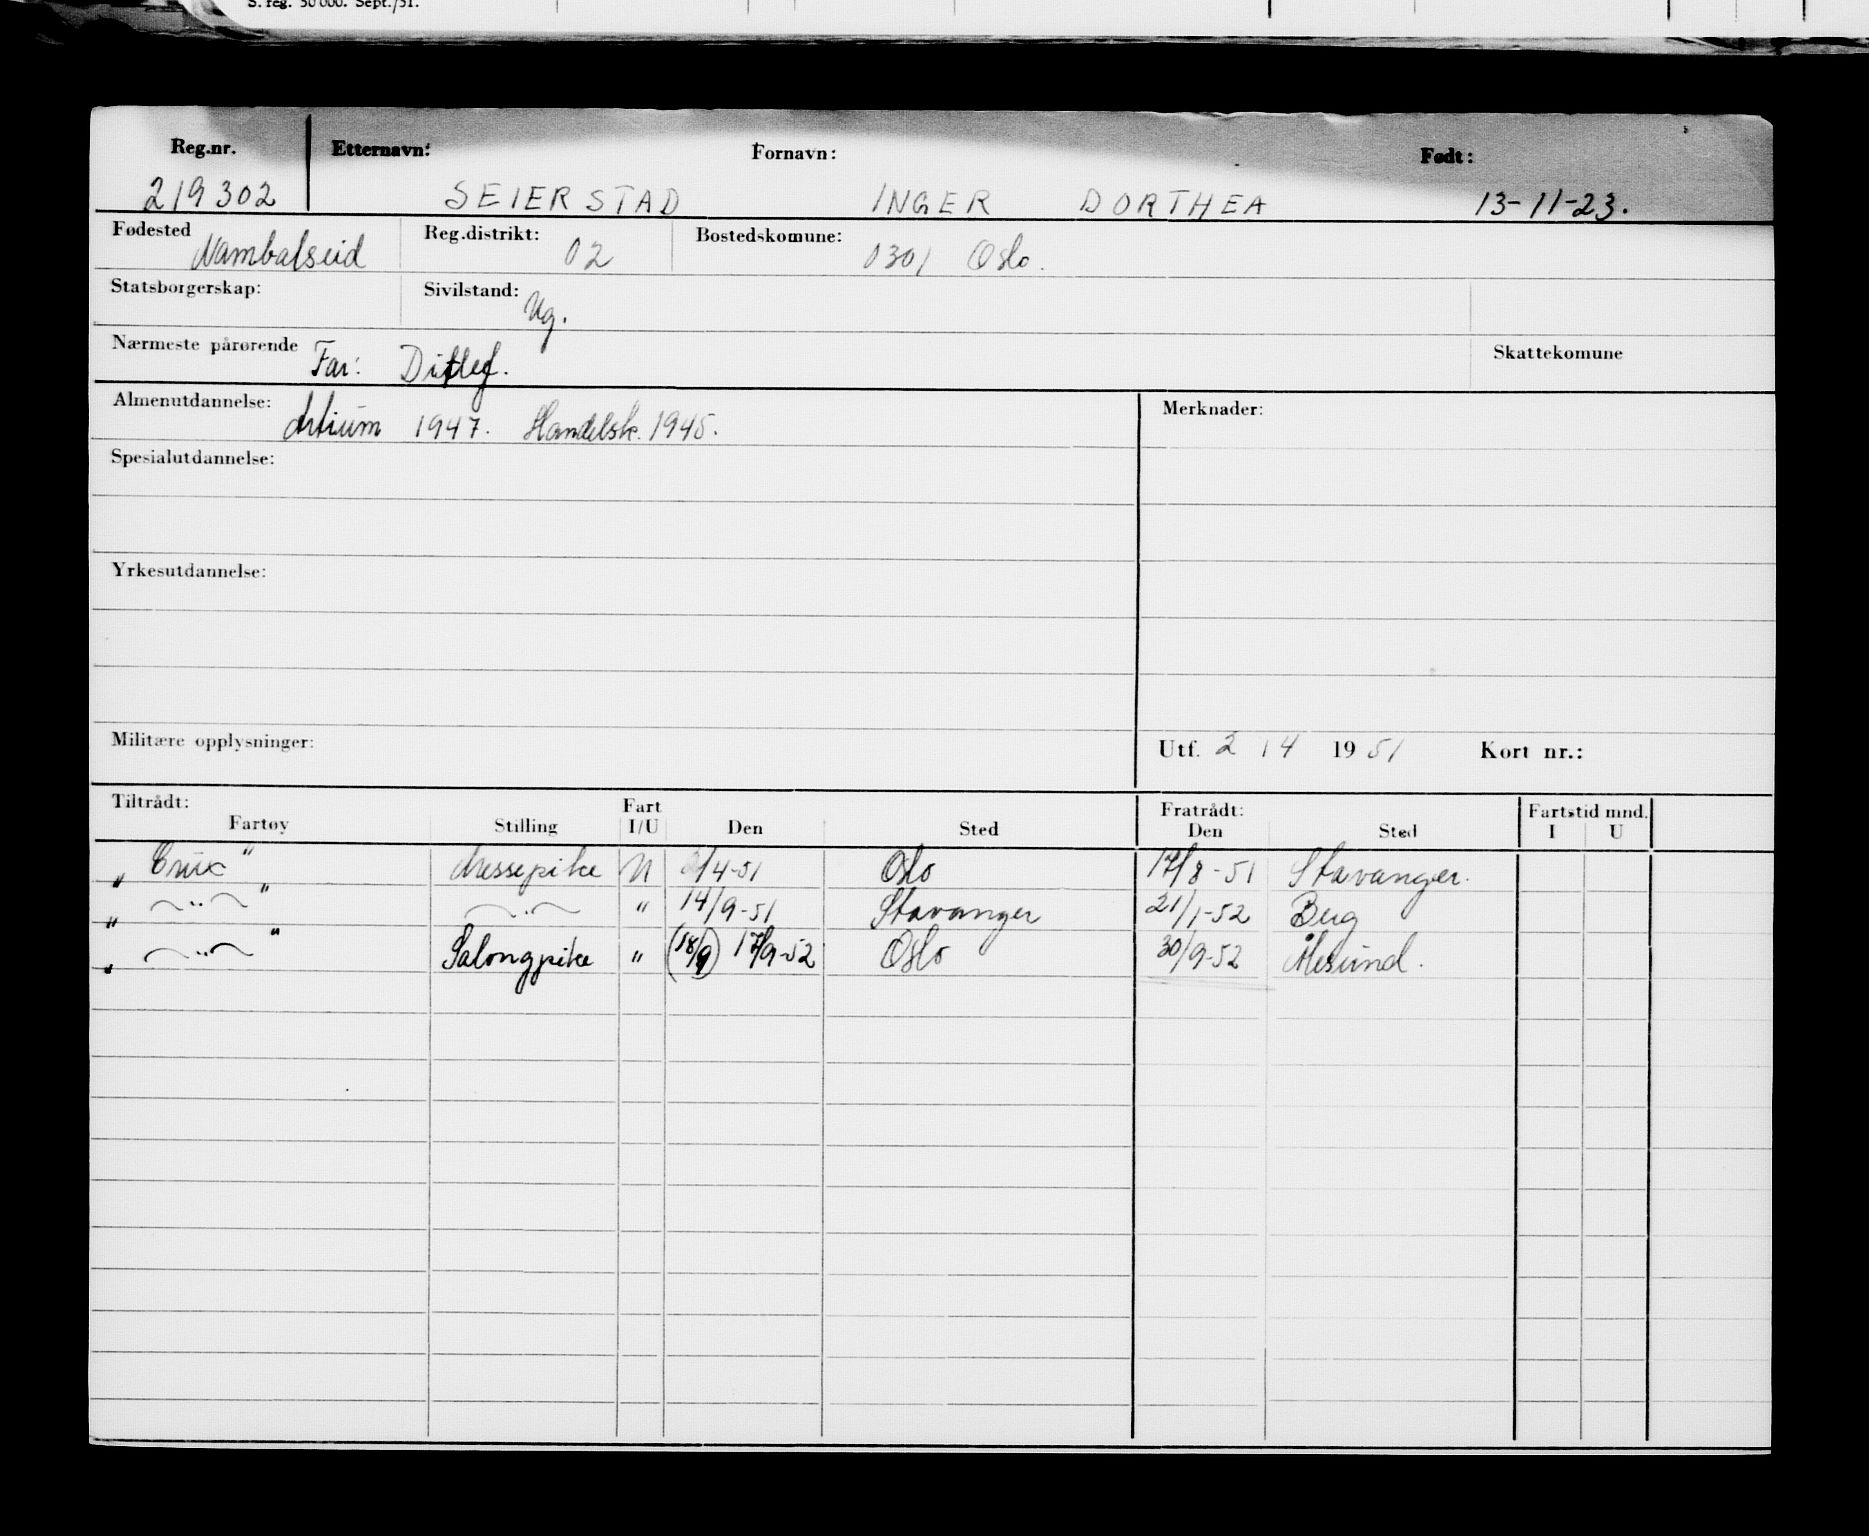 S. reg. 50 000. Sept./51.
Reg.nr. Etternavn: Fornavn: Født:
219302 SEIERSTAD INGER DORTHEA 13-11-23.
Fødested Nambalseid Reg.distrikt: 02 Bostedskomune: 0301 Oslo.
Statsborgerskap: Sivilstand: Ug.
Nærmeste pårørende Far: Ditlef. Skattekomune
Almenutdannelse: Artium 1947. Handelsk. 1945. Merknader:
Spesialutdannelse:
Yrkesutdannelse:
Militære opplysninger: Utf. 2 / 4 19 51 Kort nr.:
Tiltrådt: Fart Fratrådt: Fartstid mnd.
Fartøy Stilling I/U Den Sted Den Sted I U
„ Crux " Messepike U /4-51 Oslo 17/8-51 Stavanger.
„ —"— " —"— " 14/9-51 Stavanger 21/1-52 Berg
„ —"— " Salongpike " (18/9) 17/9-52 Oslo 30/9-52 Ålesund.